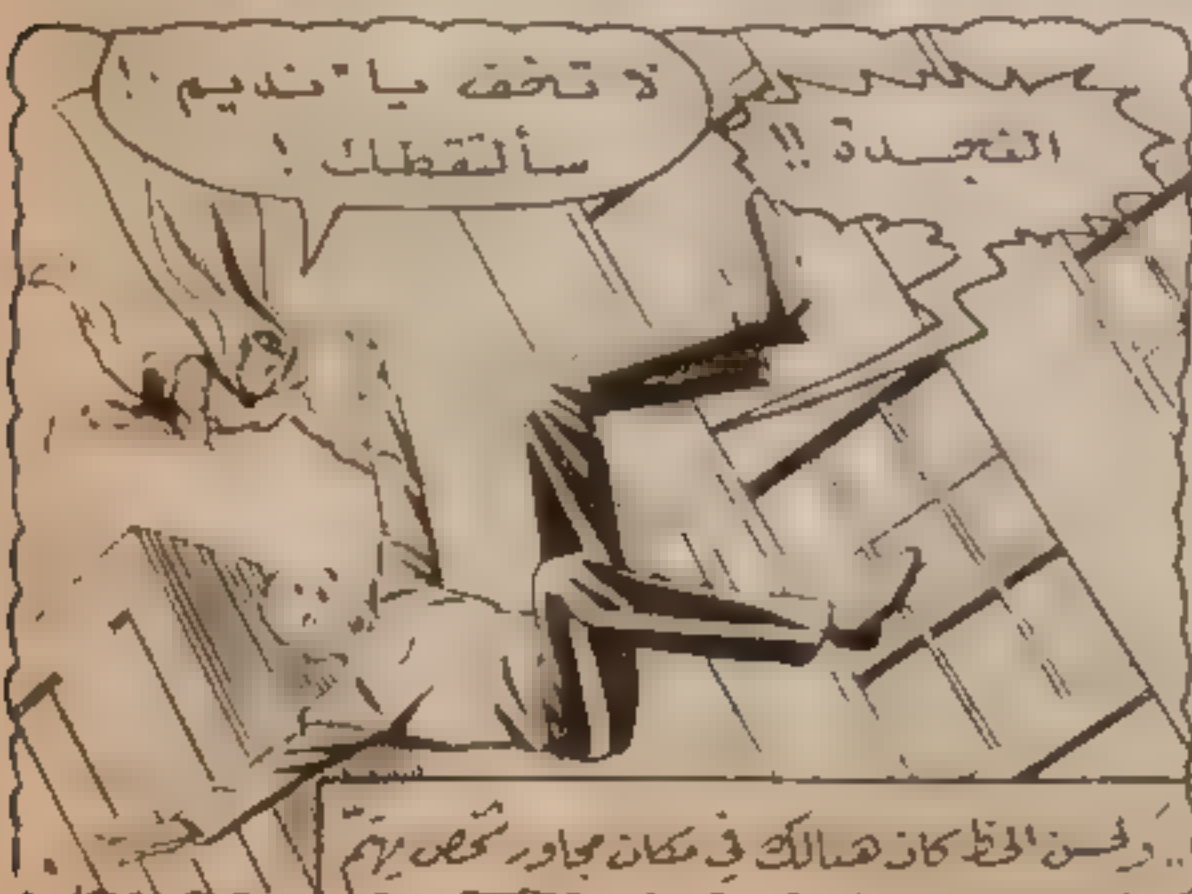 النجدة !!
لا تخف يا نديم !
سألتقطك !
.. ولحسن الحظ كان هنالك في مكان مجاور شخص يهمّ